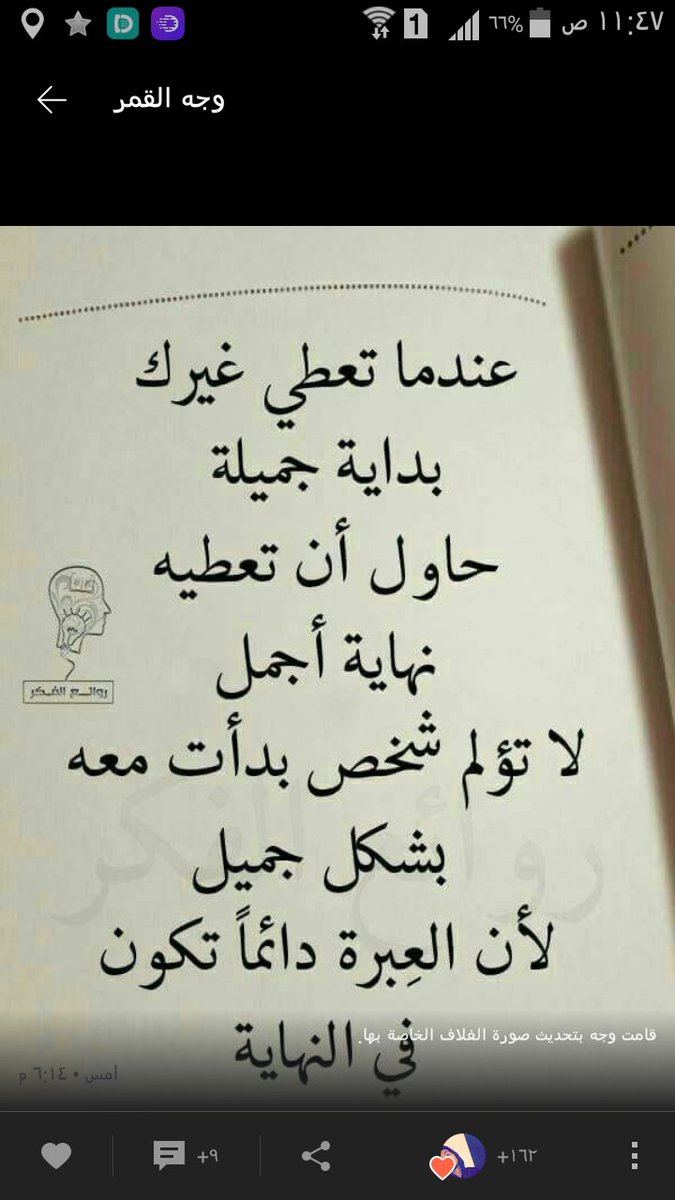 ٦٦% ص ١١:٤٧
وجه القمر
عندما تعطي غيرك
بداية جميلة
حاول أن تعطيه
نهاية أجمل
روائع الفكر
لا تؤلم شخص بدأت معه
بشكل جميل
روائع الفكر
لأن العِبرة دائماً تكون
قامت وجه بتحديث صورة الغلاف الخاصة بها.
في النهاية
أمس • ٦:١٤ م
+٩
+١٦٢